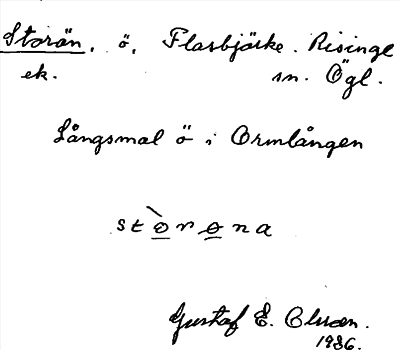 Storön. ö, Flasbjörke. Risinge
ek. sn. Ögl.
Långsmal ö i Ormlången
stòrɵna
Gustaf E.
1936.